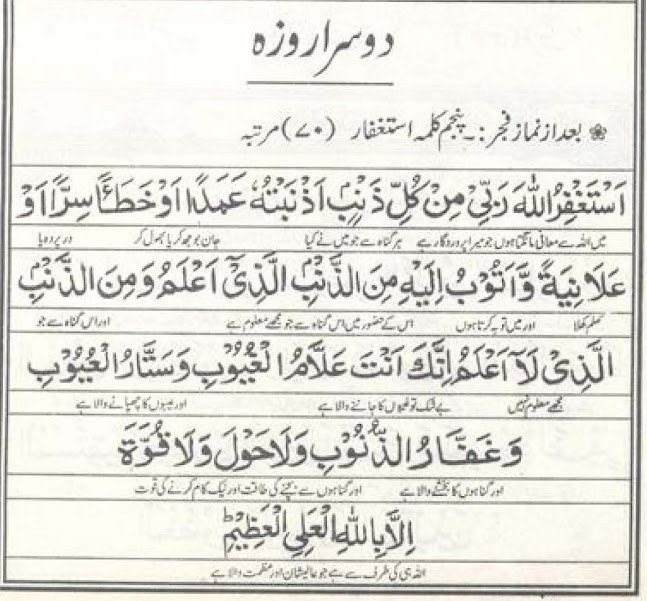 دوسرا روزہ
❀ بعد از نماز فجر :۔ پنجم کلمہ استغفار (۷۰) مرتبہ
اَسْتَغْفِرُ اللّٰهَ رَبِّیْ مِنْ كُلِّ ذَنْۢبٍ اَذْنَبْتُهٗ عَمَدًا اَوْ خَطَأً سِرًّا اَوْ
میں اللہ سے معافی مانگتا ہوں جو میرا پروردگار ہے ہر گناہ سے جو میں نے کیا جان بوجھ کر یا بھول کر در پردہ یا
عَلَانِیَةً وَّاَتُوْبُ اِلَیْهِ مِنَ الذَّنْۢبِ الَّذِیْٓ اَعْلَمُ وَمِنَ الذَّنْۢبِ
کھلم کھلا اور میں توبہ کرتا ہوں اس کے حضور میں اس گناہ سے جو مجھے معلوم ہے اور اس گناہ سے جو
الَّذِیْ لَآ اَعْلَمُ اِنَّكَ اَنْتَ عَلَّامُ الْغُیُوْبِ وَسَتَّارُ الْعُیُوْبِ
مجھے معلوم نہیں بے شک تو غیبوں کا جاننے والا ہے اور عیبوں کا چھپانے والا ہے
وَ غَفَّارُ الذُّنُوْبِ وَلَا حَوْلَ وَلَا قُوَّةَ
اور گناہوں کا بخشنے والا ہے اور گناہوں سے بچنے کی طاقت اور نیک کام کرنے کی قوت
اِلَّا بِاللّٰهِ الْعَلِیِّ الْعَظِیْمِؕ
اللہ ہی کی طرف سے ہے جو عالیشان اور عظمت والا ہے